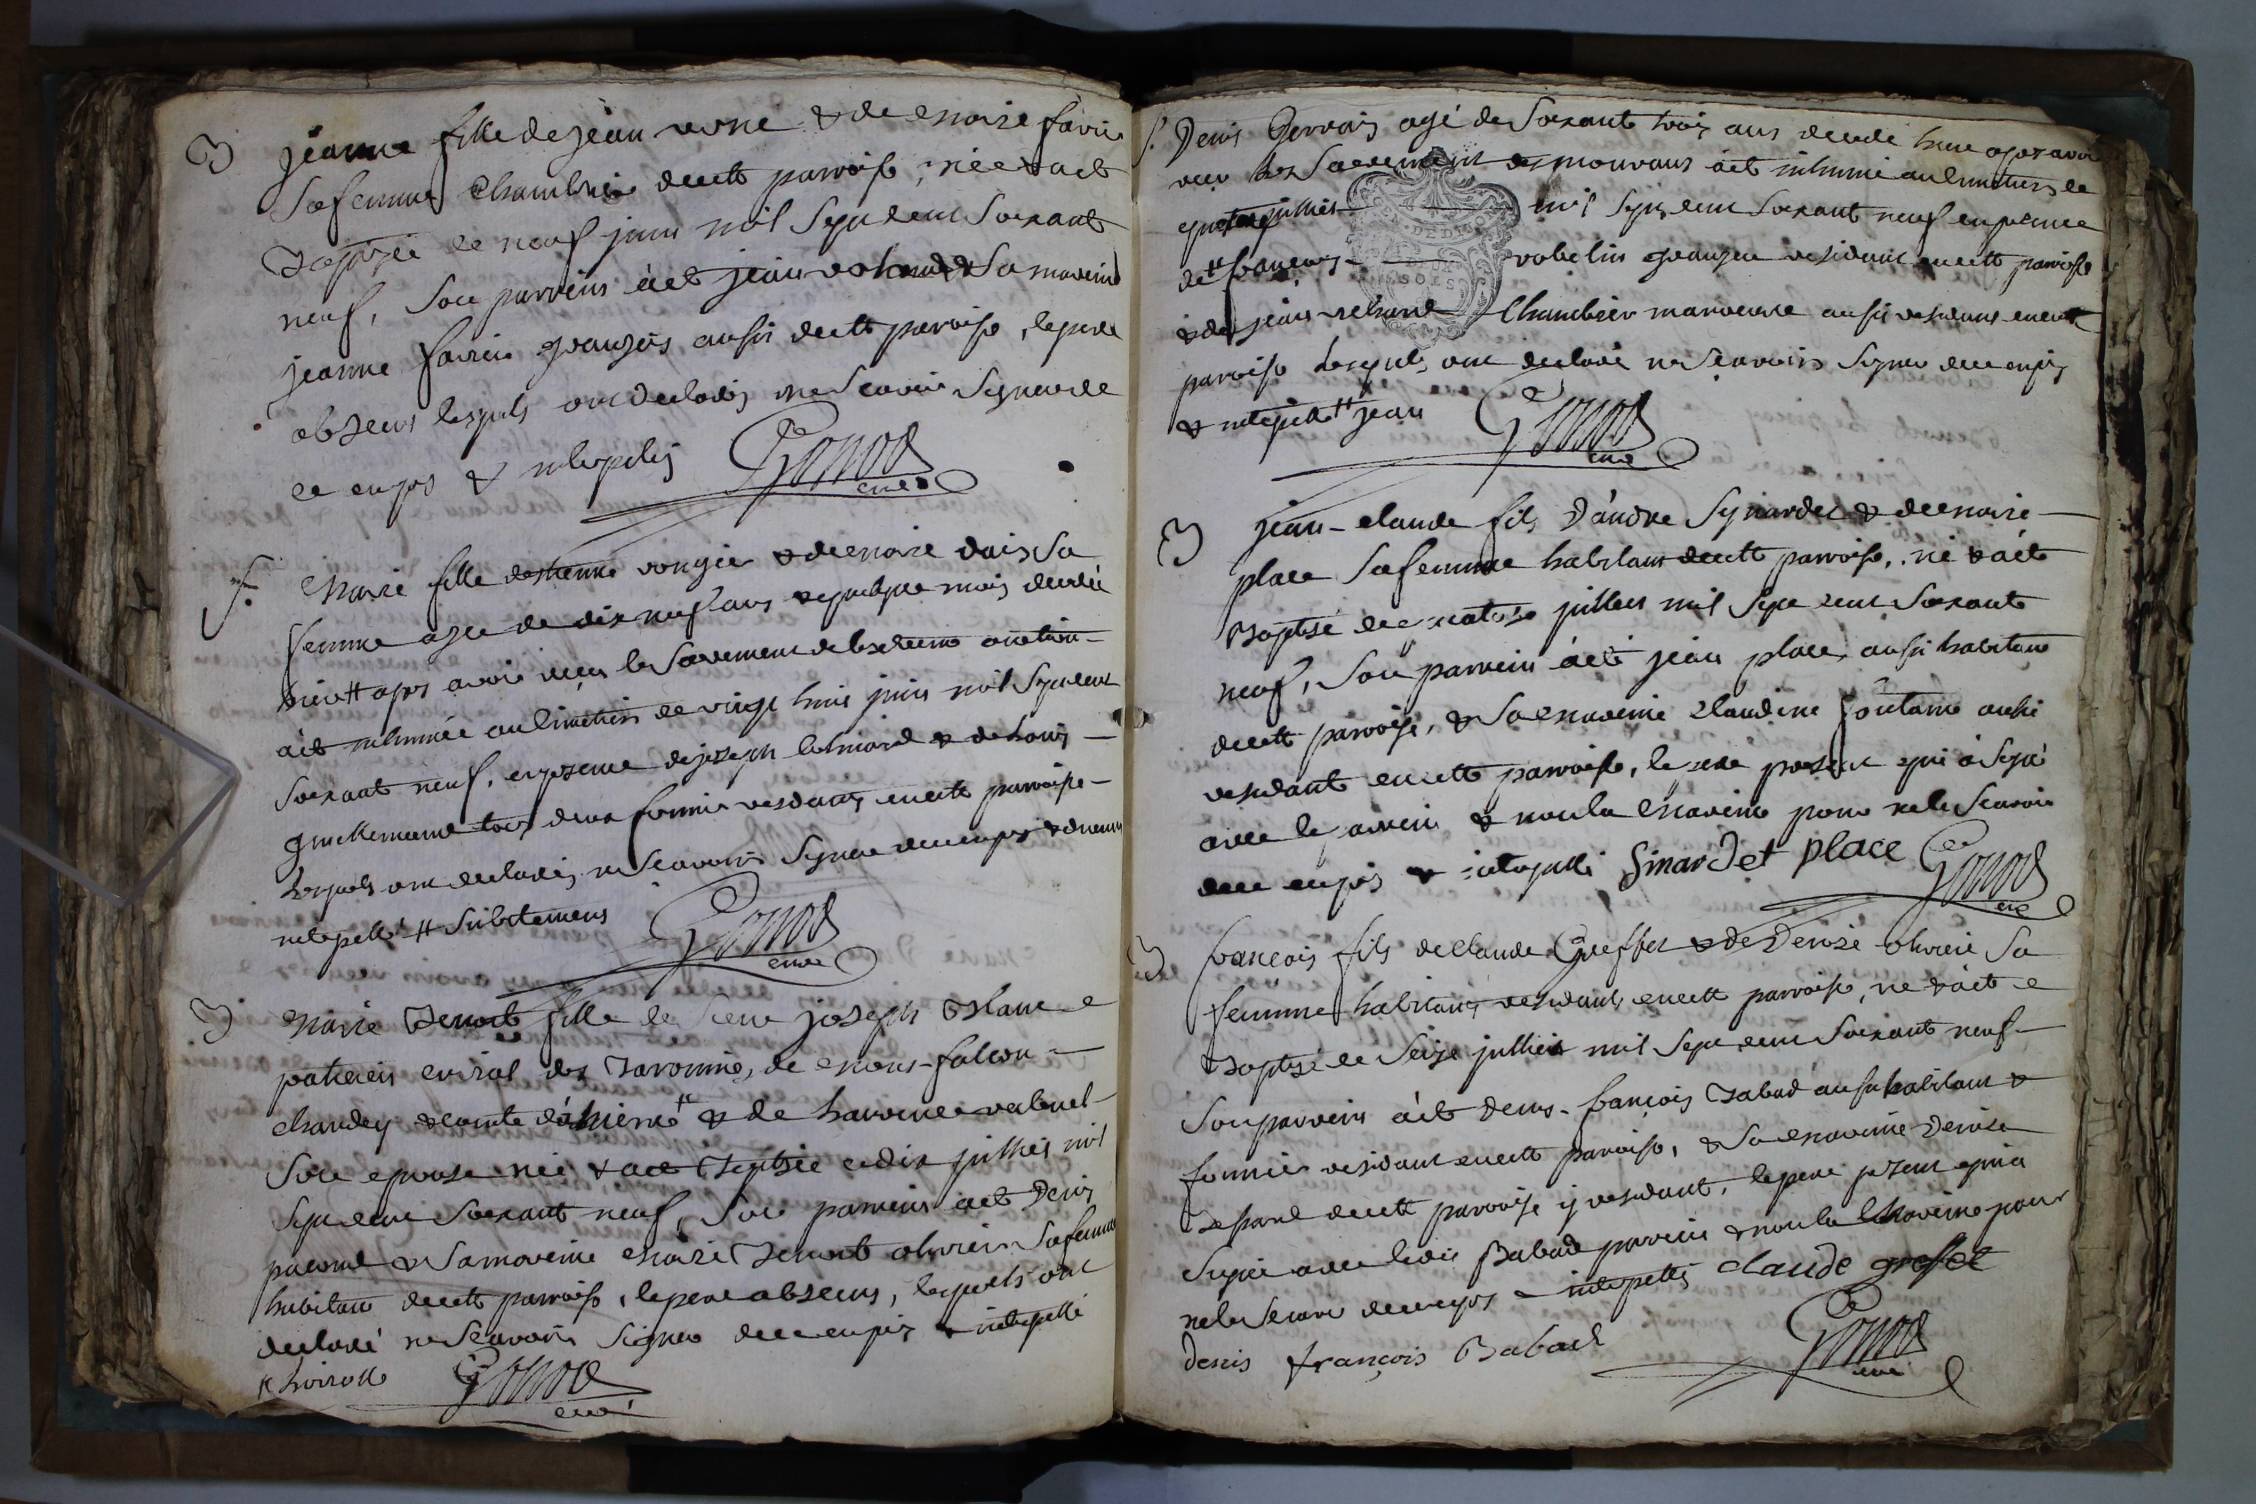 B jeanne fille de jean verne & de marie favre
Sa femme Chambrier decette parroisse, née & aete
Baptisée le neuf juin mil Sept cent Soixant
neuf, Son parrein àeté jean & Sa mareine
jeanne favre granger aussi decette paroisse, le pere
absent lesquels ont declarés ne Scavoir Signer de
ce enquis & interpellés Gonod
curé
S. Marie fille rougier & de marie Sa
femme agée de dix neuf ans & quelque mois decedée
apres avoir reçu le Sacrement
àeté inhumée au Cimetiere le vingt huit juin mil Sept cent
Soixant neuf, en presence de joseph & de Louis
tous deux residants en cette parroisse
lesquels ont declarés ne Scavoir Signer de ce enquis &
interpellé # Subitement Gonod
curé
B Marie Benoite fille de Sieur joseph Blanc
des Baronnie, de mont-falcon
chandey & comte & de
Son epouse née & aete Baptisée le dix juillet mil
Sept cent Soixant neuf, Son parrein àeté Denis
pacoud & Sa mareine Marie Benoite olivier Sa femme
habitant decette parroisse, le pere absent, lesquels ont
declaré ne Scavoir Signer de ce enquis & interpellé
Gonod
curé
S. Denis Gervais agé de Soixante trois ans decedé hier apres avoir
reçu les Sacrement des mourans àeté inhumé au Cimetiere le
quatre juillet mil Sept cent Soixant neuf en presence
de # françois robelin granger residant en cette paroisse
& de jean Chambrier manoeuvre aussi residant en cette
paroisse lesquels ont declaré ne Scavoir Signer de ce enquis
& interpellé # jean Gonod
curé
B jean-claude fils D'andre Synardet & de marie
place Sa femme habitant decette parroisse, né & àeté
Baptisé le quatorze juillet mil Sept cent Soixante
neuf, Son parrein àeté jean place aussi habitant
decette parroisse, & Sa mareine Claudine fontaine aussi
residante en cette parroisse, le pere present qui à Signé
avec le parrein & non la Mareine pour ne le Scavoir
de ce enquis & interpellé Sinardet place Gonod
curé
B françois fils de Claude Greffet & de Denise olivier Sa
femme habitans residants en cette parroisse, né & àeté
Baptisé le Seize juillet mil Sept cent Soixant neuf
Son parrein àeté Denis-françois Babad aussi habitant &
residant en cette paroisse, & Sa mareine Denise
decette parroisse y residant, le pere present qui a
Signé avec ledit Babad parrein & non la Mareine pour
ne le Scavoir de ce enquis & interpellés claude grefet
denis françois Babad Gonod
curé